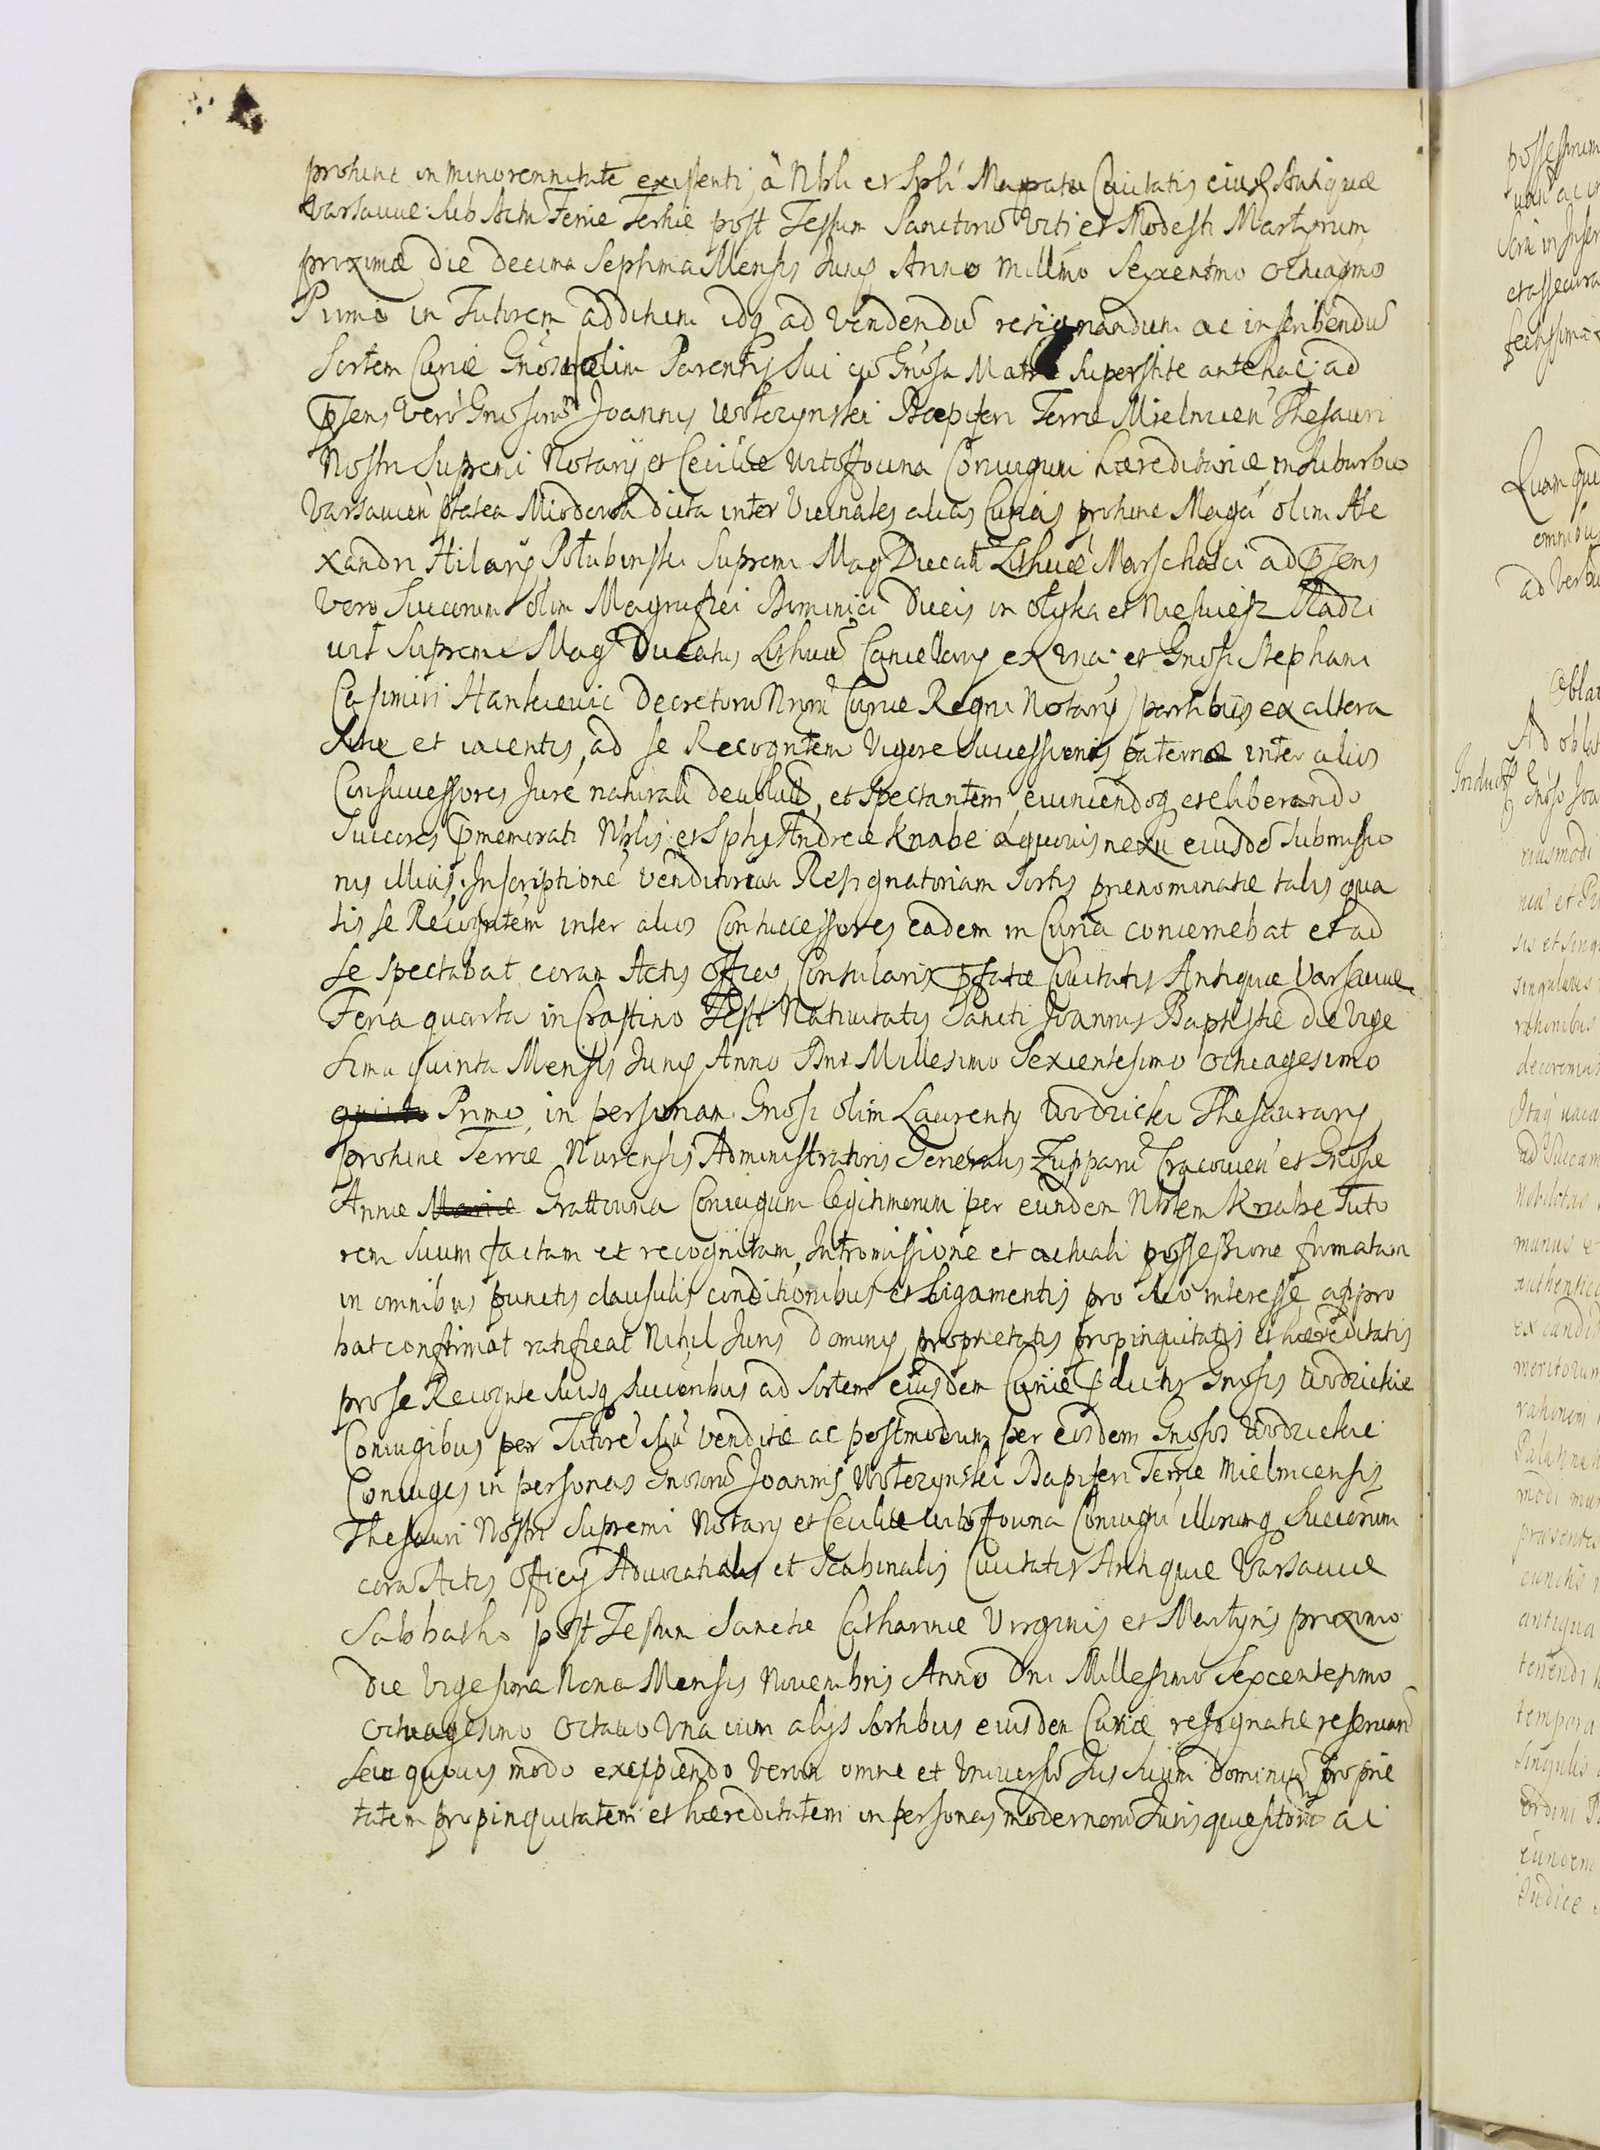 prohinc in minorennitate existenti, à Nbli et Spli Magratu Civitatis eiusd Antiquæ
Varsaviæ sub Actu Feriæ Tertiæ post Festum Sanctorū Viti et Modesti Martyrum
proximæ die decima Septima Mensis Junij Anno Millmo Sexentmo octuagmo
Primo in Tutorem additum idq ad vendendū resignandum ac inscribendū
Sortem Curiæ Gnosi olim Parentis sui cū Gnosa Matre superstite antehac, ad
pñsens verò Gnosorū Joannis Wołczynski Dapiferi Terræ Mielnicen Thesauri
Nostri Supremi Notarij et Ceciliæ Witoffowna Coniugum hæreditariæ in suburbio
Varsavien platea Miodowa dicta inter vicinates alias Curias prohinc Magci olim Ale
xandri Hilarij Połubinski Supremi Mag Ducat Lithuæ Marschalci ad pñsens
vero Succorum olim Magnifici Dominici Ducis in Ołyka et Nieswiez Radzi
wił Supremi Mag Ducatus Lithuæ Cancellarij ex una et Gnosi Stephani
Casimiri Hankiewic Decretorū Nrorū Curiæ Regni Notarij partibus ex altera
sitæ et iacentis, ad se Recogntem vigore successionis paternæ inter alios
Consuccessores Jure naturali devolutā, et spectantem, evincendoq et eliberando
Succores pmemorati Nblis et Splis Andreæ Knabe à quovis nexu eiusdē submissio
nis illius, Inscriptionē venditoriam Resignatoriam Sortis prænominatæ talis qua
lis se Recogntem inter alios Consuccessores eadem in Curia concernebat et ad
se spectabat coram Actis Officij Consularis pfatæ Civitatis Antiquæ Varsaviæ
Feria quarta in Crastino Festi Nativitatis Sancti Joannis Baptistæ die vige
sima quinta Mensis Junij Anno Dni Millesimo Sexcentesimo octuagesimo
quinto Primo, in personam Gnosi olim Laurentij Wodzicki Thesaurarij
prohinc Terræ Nurensis Administratoris Generalis Zupparū Cracovien et Gnosæ
Annæ Mariæ Grattowna Coniugum legitimorum per eundem Nblem Knabe Tuto
rem suum factam et recognitam, Intromissione et actuali possessione firmatam
in omnibus punctis clausulis conditionibus et ligamentis pro suo interesse appro
bat confirmat ratificat Nihil Juris dominij proprietatis propinquitatis et hæreditatis
pro se Recognte suisq succoribus ad sortem eiusdem Curiæ pdictis Gnosis Wodzickie
Coniugibus per Tutorē suū venditæ ac postmodum per eosdem Gnosos Wodzickie
Coniuges in personas Gnosorū Joannis Wołczynski Dapiferi Terræ Mielnicensis
Thesauri Nostri Supremi Notarij et Ceciliæ Witoffowna Coniugū illorumq Succorum
corā Actis Officij Advocatialis et Scabinalis Civitatis Antiquæ Varsaviæ
Sabbatho post Festum Sanctæ Catharinæ Virginis et Martyris proximo
die vigesima Nona Mensis Novembris Anno Dni Millesimo Sexcentesimo
octuagesimo octavo una cum alijs sortibus eiusdem Curiæ resignatæ reservand
seu quovis modo excipiendo verum omne et universū Jus suum dominiū proprie
tatem propinquitatem et hæreditatem in personas modernorū Juris quæsitorū ac